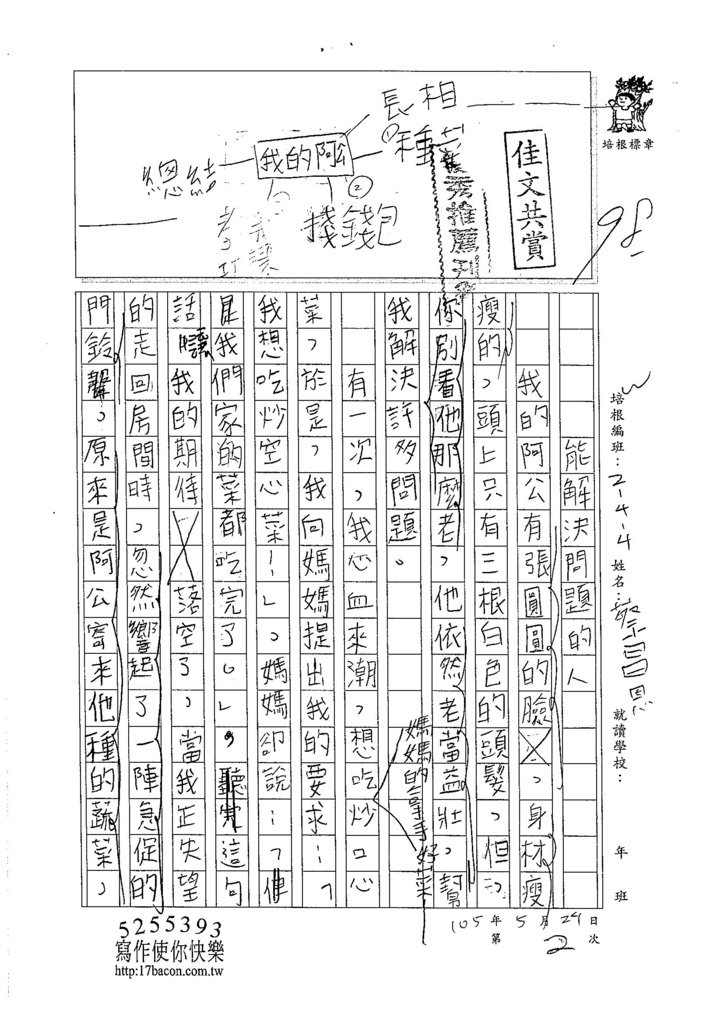 培根標章
佳文共賞
98
長相
①種菜
我的阿公
總結
②
撿錢包
秀推薦刊
培根編班：2-4-4
姓名：
就讀學校：
年
班
能解決問題的人
我的阿公有張圓圓的臉，身材瘦
瘦的，頭上只有三根白色的頭髮，但
你別看他那麼老，他依然老當益壯，幫
我解決許多問題。
媽媽的拿手好菜
有一次，我心血來潮，想吃炒口心
菜，於是，我向媽媽提出我的要求：「
我想吃炒空心菜！」，媽媽卻說：「但
是我們家的菜都吃完了。」，聽完這句
話，讓我的期待落空了，當我正失望
的走回房間時，忽然響起了一陣急促的
門鈴聲，原來是阿公寄來他種的蔬菜，
105年5月24日
第2次
5255393
寫作使你快樂
http:17bacon.com.tw